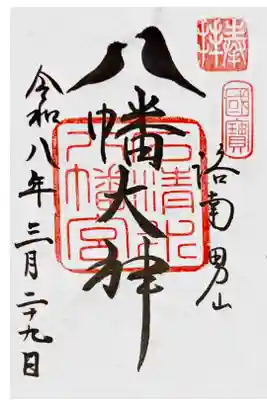 奉拝
國寶
洛南男山
八幡大神
石清水八幡宮
令和八年三月二十九日